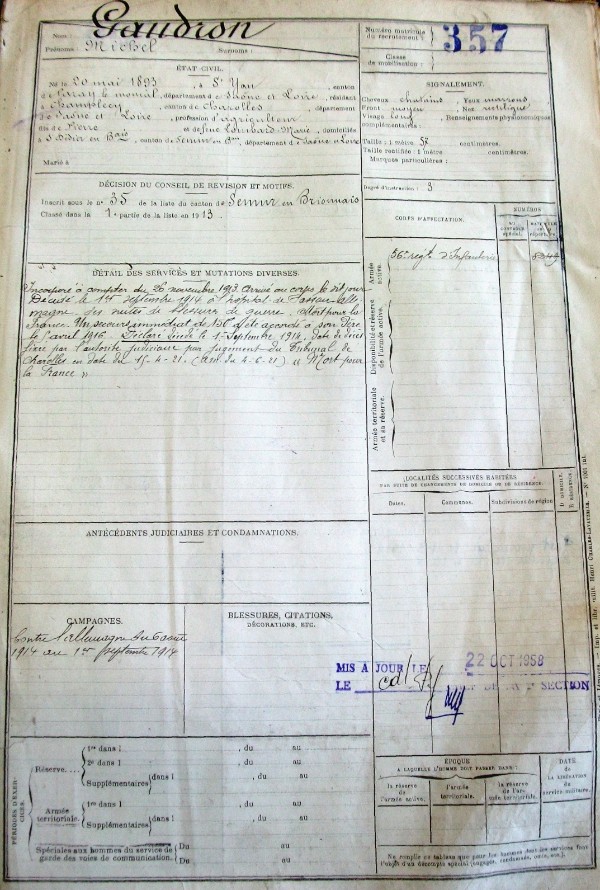 Nom : Gaudron
Prénoms : Michel Surnoms :
Numéro matricule du recrutement : 357
Classe de mobilisation :
ÉTAT CIVIL.
Né le 20 mai 1893, à St Yan, canton
de Paray le monial, département de Saône et Loire, résidant
à Champlecy, canton de Charolles, département
de Saône et Loire, profession d'agriculteur
fils de Pierre et de feue Lombard Marie, domiciliés
à St Didier en Bois, canton de Semur en Bais, département de Saône et Loire
Marié à
SIGNALEMENT.
Cheveux chatains Yeux marrons
Front moyen Nez rectiligne
Visage long Renseignements physionomiques
complémentaires :
Taille : 1 mètre 57 centimètres.
Taille rectifiée : 1 mètre centimètres.
Marques particulières :
Degré d'instruction : 3
DÉCISION DU CONSEIL DE RÉVISION ET MOTIFS.
Inscrit sous le n° 35 de la liste du canton de Semur en Brionnais
Classé dans la 1e partie de la liste en 1913
CORPS D'AFFECTATION.
NUMÉROS
Armée active.
56e régt d'Infanterie
Disponibilité et réserve de l'armée active.
Armée territoriale et sa réserve.
DÉTAIL DES SERVICES ET MUTATIONS DIVERSES.
Incorporé à compter du 26 novembre 1913. Arrivé au corps le dit jour
Décédé le 1er septembre 1914 à l'hôpital de Passau Alle
magne des suites de blessures de guerre. Mort pour la
France. Un secours immédiat de 150f a été accordé à son Père
le 5 avril 1916. Déclaré décédé le 1er Septembre 1914. Date de décès
fixée par l'autorité judiciaire par jugement du Tribunal de
Charolles en date du 15-4-21. (a.m. du 4-6-21) "Mort pour
la France"
LOCALITÉS SUCCESSIVES HABITÉES
PAR SUITE DE CHANGEMENTS DE DOMICILE OU DE RÉSIDENCE.
Dates. Communes. Subdivisions de région D DOMICILE. R RÉSIDENCE.
ANTÉCÉDENTS JUDICIAIRES ET CONDAMNATIONS.
CAMPAGNES.
Contre l'allemagne du 2 aout
1914 au 1er septembre 1914
BLESSURES, CITATIONS,
DÉCORATIONS, ETC.
MIS A JOUR LE 22 OCT 1958
LE SECTION
PÉRIODES D'EXERCICES.
Réserve....
1re dans l , du au
2e dans l , du au
Supplémentaires dans l , du au
Armée territoriale.
1re dans l , du au
Supplémentaires dans l , du au
Spéciales aux hommes du service de
garde des voies de communication.
Du au
Du au
ÉPOQUE
A LAQUELLE L'HOMME DOIT PASSER DANS :
la réserve de l'armée active.
l'armée territoriale.
la réserve de l'armée territoriale.
DATE de LA LIBÉRATION du service militaire.
Ne remplir ce tableau que pour les hommes dont les services font
l'objet d'un décompte spécial (engagés, condamnés, omis, etc.).